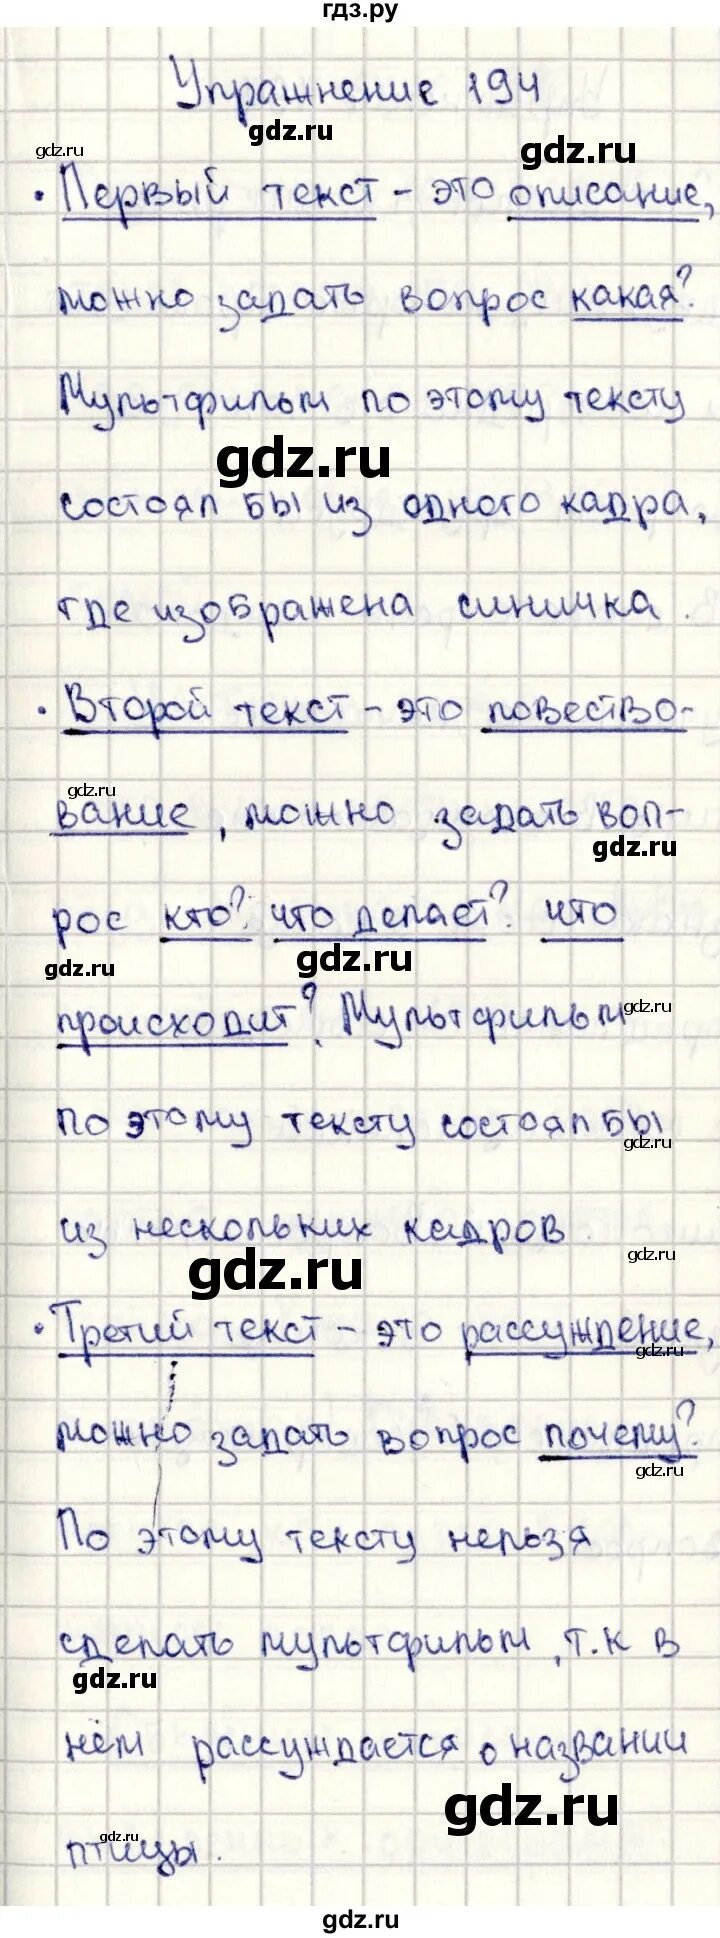 гдз.ру
Упражнение 194
gdz.ru
gdz.ru
gdz.ru
• Первый текст - это описание,
можно задать вопрос какая?
Мультфильм по этому тексту
gdz.ru
состоял бы из одного кадра,
где изображена синичка.
• Второй текст - это повество-
gdz.ru
вание, можно задать воп-
gdz.ru
рос кто? что делает? что
gdz.ru
gdz.ru
происходит? Мультфильм
gdz.ru
по этому тексту состоял бы
gdz.ru
из нескольких кадров.
gdz.ru
gdz.ru
• Третий текст - это рассуждение,
gdz.ru
можно задать вопрос почему?
gdz.ru
По этому тексту нельзя
сделать мультфильм, т.к в
gdz.ru
нём рассуждается о названии
gdz.ru
птицы.
gdz.ru
gdz.ru